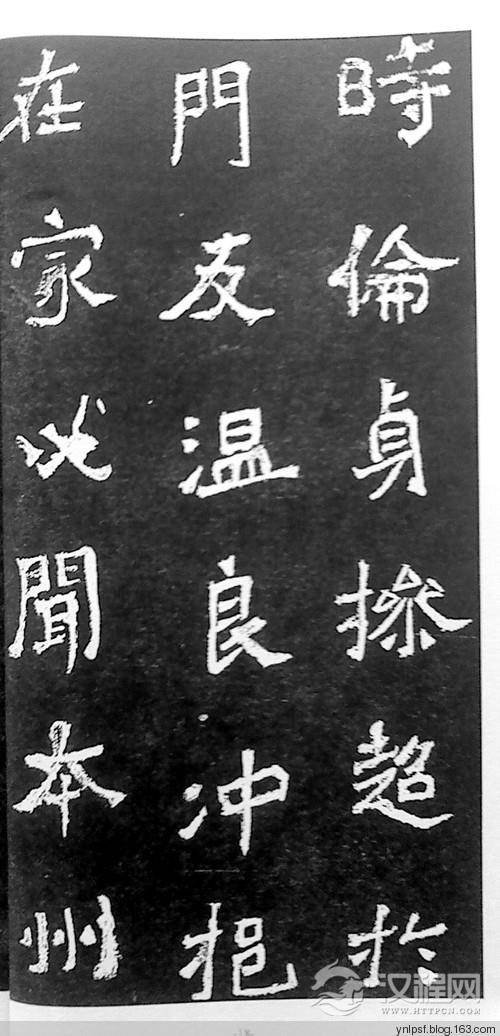 時倫貞操超於
門友温良冲挹
在家必聞本州
汉程网
HTTPCN.COM
ynlpsf.blog.163.com